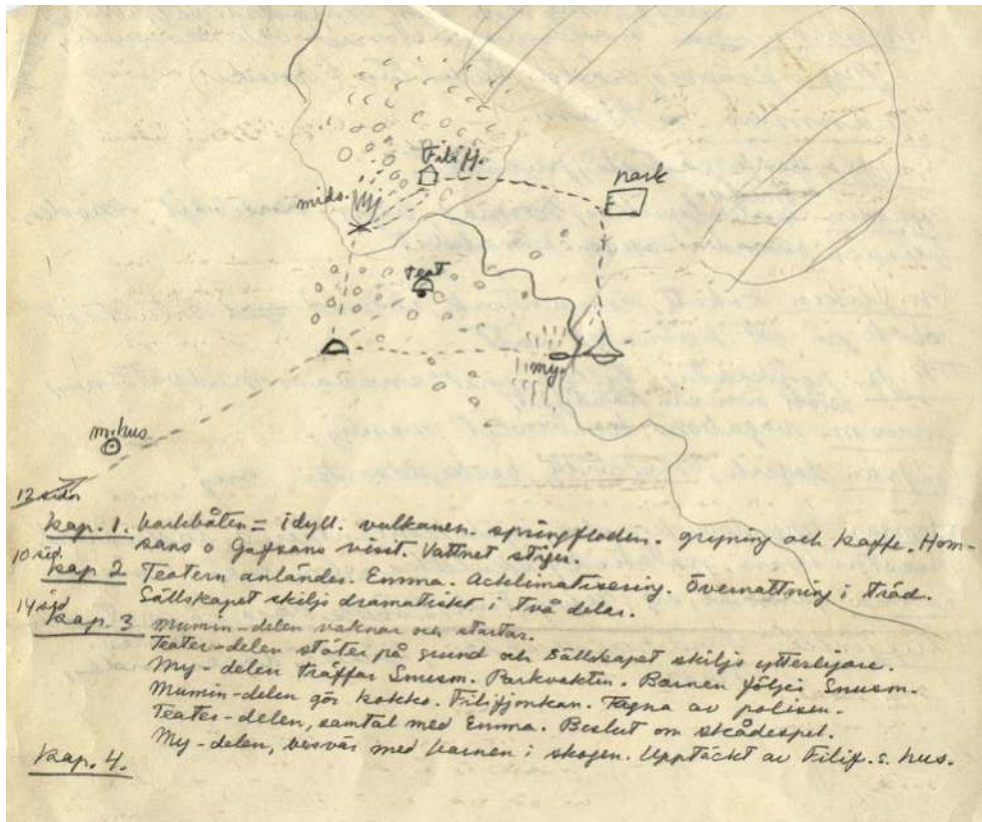 Filifj.
park
mids.
teat
my
m.hus.
12 sidor
kap. 1. barkbåten = idyll. vulkanen. springfloden. gryning och kaffe. Hom-
sans o Gafsans visit. Vattnet stiger.
10 sid.
kap 2 Teatern anländer. Emma. Acklimatisering. Övernattning i träd.
Sällskapet skiljs dramatiskt i två delar.
14 sid
kap. 3 Mumin-delen vaknar och startar.
Teater-delen stöter på grund och sällskapet skiljs ytterligare.
My-delen träffar Snusm. Parkvakten. Barnen följer Snusm.
Mumin-delen gör kokko. Filifjonkan. Tagna av polisen.
Teater-delen, samtal med Emma. Beslut om skådespel.
My-delen, besvär med barnen i skogen. Upptäckt av Filifj.s. hus.
kap. 4.